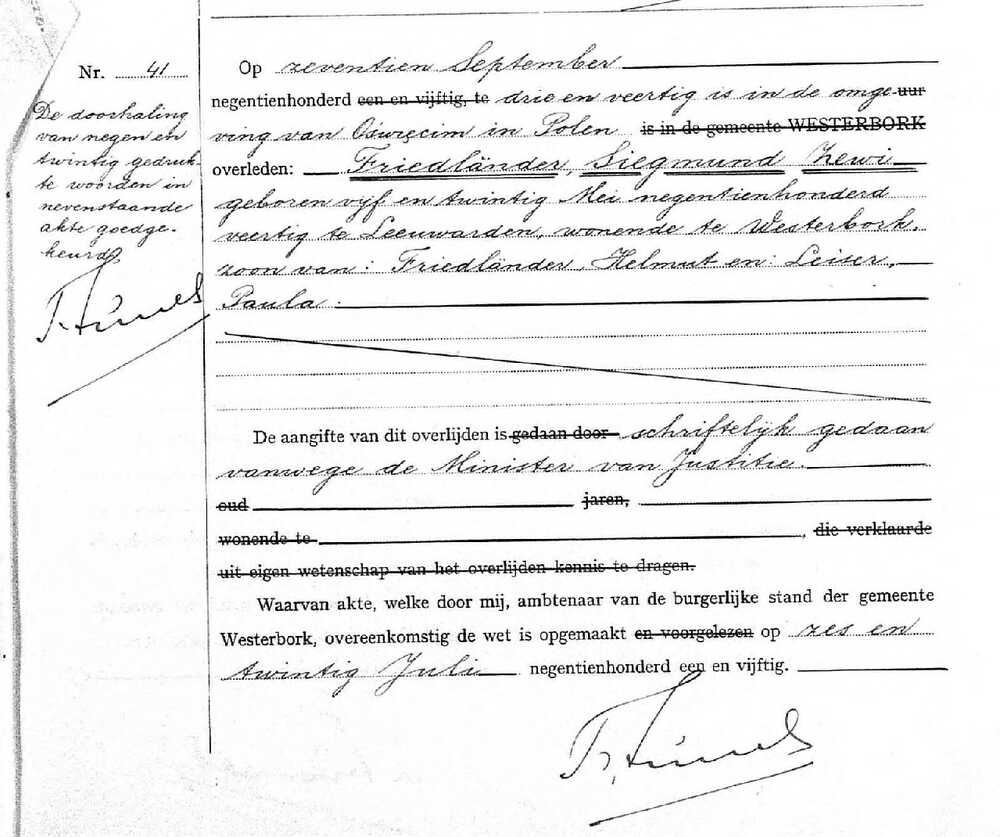 Nr. 41
De doorhaling
van negen en
twintig gedruk-
te woorden in
nevenstaande
akte goedge-
keurd,
Op zeventien September
negentienhonderd een en vijftig, te drie en veertig is in de omge- uur
ving van Oświęcim in Polen is in de gemeente WESTERBORK
overleden: Friedländer, Siegmund Zewi
geboren vijf en twintig Mei negentienhonderd
veertig te Leeuwarden, wonende te Westerbork,
zoon van: Friedländer, Helmut en: Leiser,
Paula.
De aangifte van dit overlijden is gedaan door schriftelijk gedaan
vanwege de Minister van Justitie.
oud jaren,
wonende te , die verklaarde
uit eigen wetenschap van het overlijden kennis te dragen.
Waarvan akte, welke door mij, ambtenaar van de burgerlijke stand der gemeente
Westerbork, overeenkomstig de wet is opgemaakt en voorgelezen op zes en
twintig Juli negentienhonderd een en vijftig.